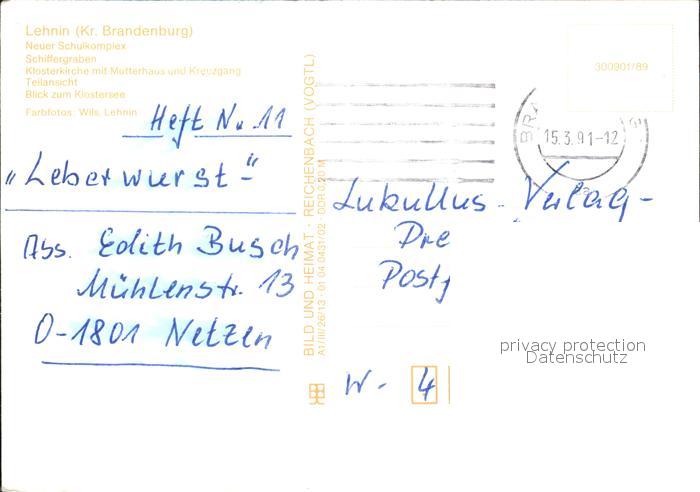 Lehnin (Kr. Brandenburg)
Neuer Schulkomplex
Schiffergraben
Klosterkirche mit Mutterhaus und Kreuzgang
Teilansicht
Blick zum Klostersee
Farbfotos: Wils, Lehnin
Heft Nr. 11
„Leberwurst-"
Abs. Edith Busch
Mühlenstr. 13
O-1801 Netzen
BILD UND HEIMAT · REICHENBACH (VOGTL)
A1/III/26/13 01 04 0431/02 DDR 0,20 M
300901/89
15.3.91-12
Lukullus-Verlag-
Dre
Postf
W- 4
privacy protection
Datenschutz